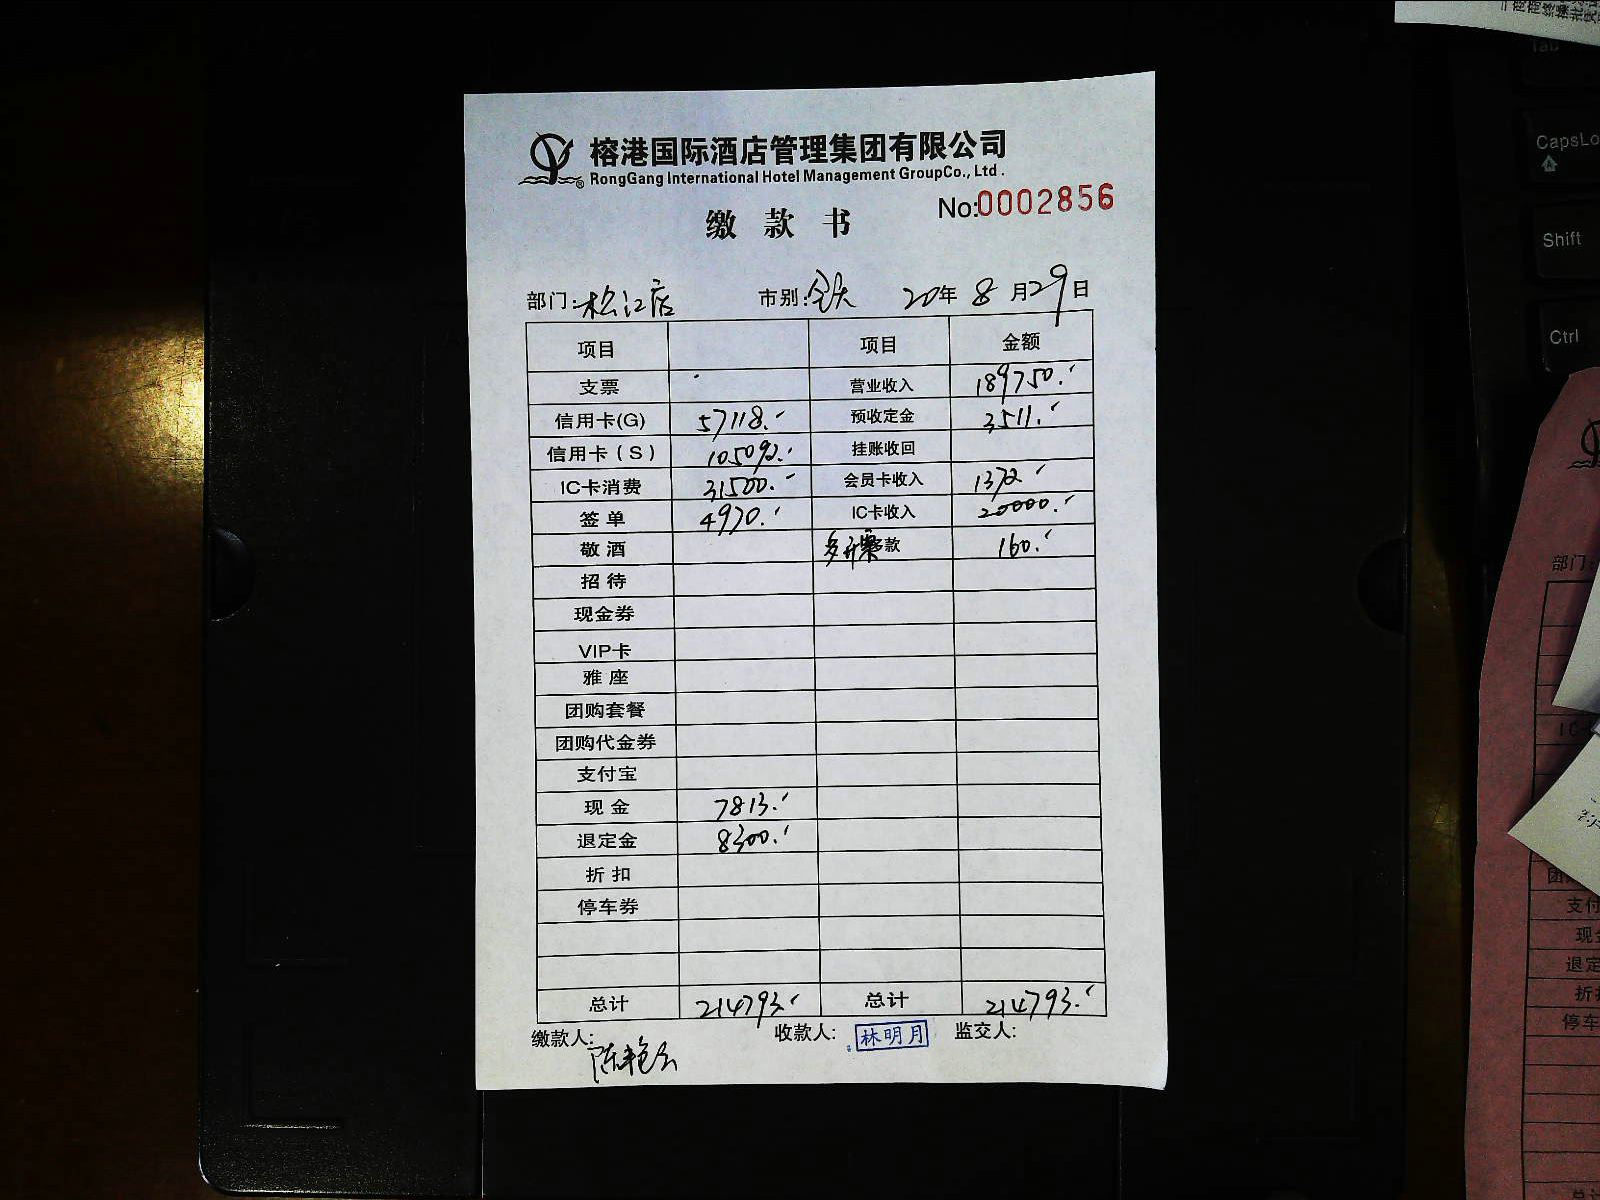 榕港国际酒店管理集团有限公司
RongGang International Hotel Management GroupCo., Ltd .
No:0002856
缴 款 书
部门:松江店 市别:全天 2020年 8 月29日
项目 项目 金额
支票 营业收入 189750.
信用卡(G) 57118. 预收定金 3511.
信用卡(S) 105092. 挂账收回
IC卡消费 31500. 会员卡收入 1372
签 单 4970. IC卡收入 20000.
敬 酒 多开票 款 160.
招 待
现金券
VIP卡
雅 座
团购套餐
团购代金券
支付宝
现 金 7813.
退定金 8300.
折 扣
停车券
总计 214793. 总计 214793.
缴款人: 收款人: 林明月 监交人:
CapsLo
Shift
Ctrl
Tab
部门:
支付
现
退定
折
停车